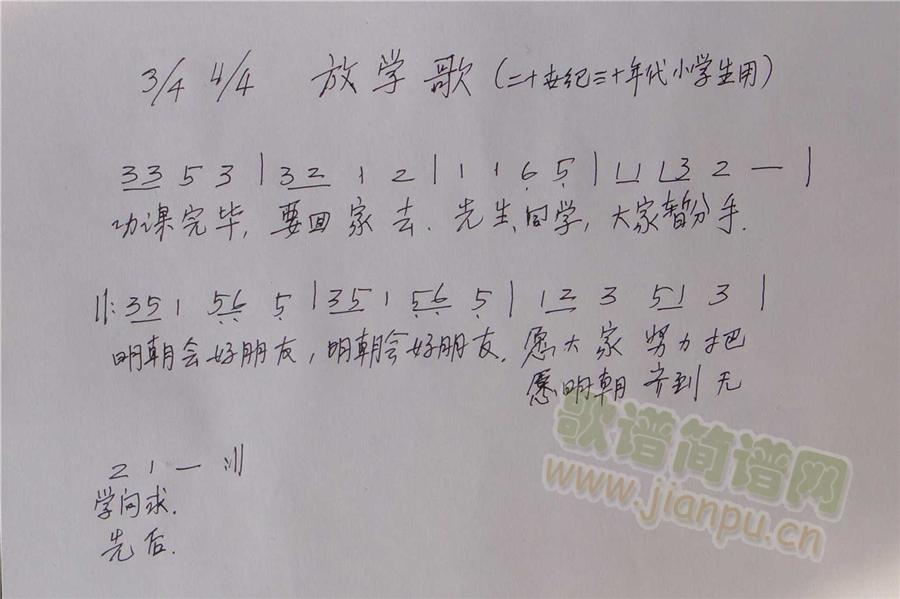 3/4 4/4 放学歌（二十世纪三十年代小学生用）
33 5 3 | 32 1 2 | 1 1 6 5 | 11 13 2 — |
功课完毕，要回家去．先生、同学，大家暂分手．
||: 35 1 56 5 | 35 1 56 5 | 12 3 51 3 |
明朝会好朋友，明朝会好朋友．愿大家努力把
愿明朝齐到无
2 1 — :||
学问求．
先后．
歌谱简谱网
www.jianpu.cn